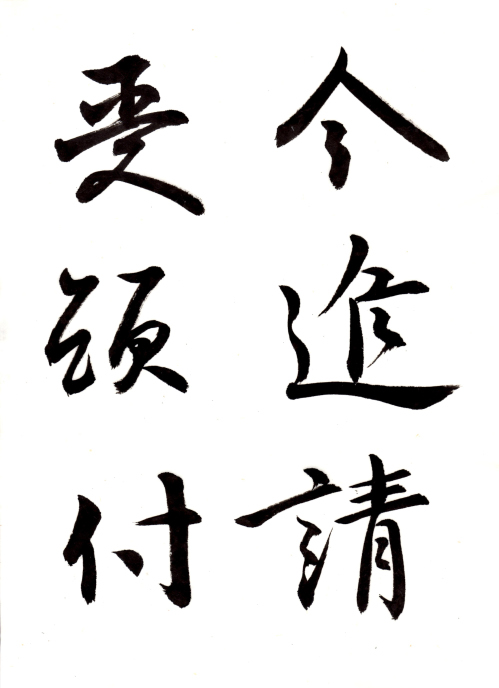 今進請
受領付